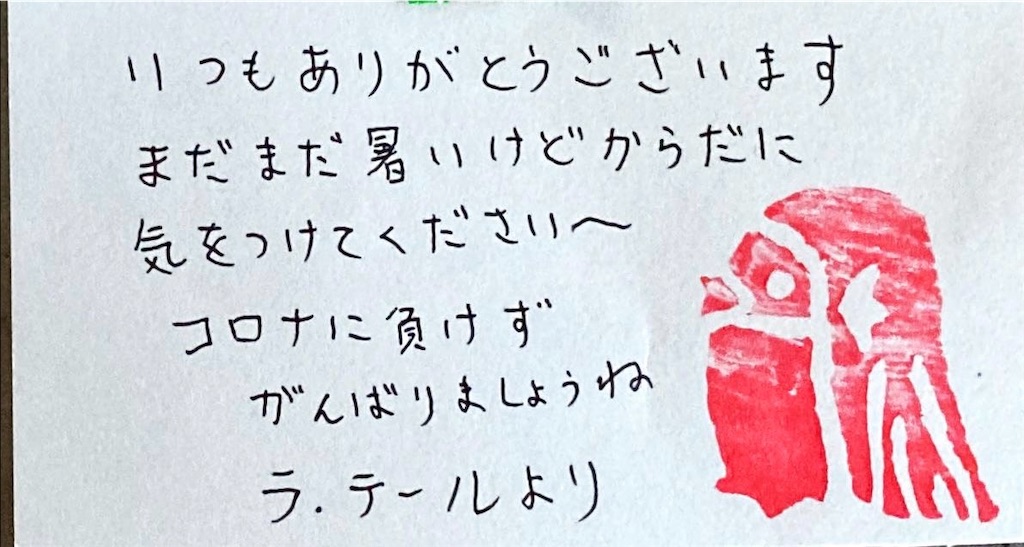 いつもありがとうございます
まだまだ暑いけどからだに
気をつけてください〜
コロナに負けず
がんばりましょうね
ラ.テールより